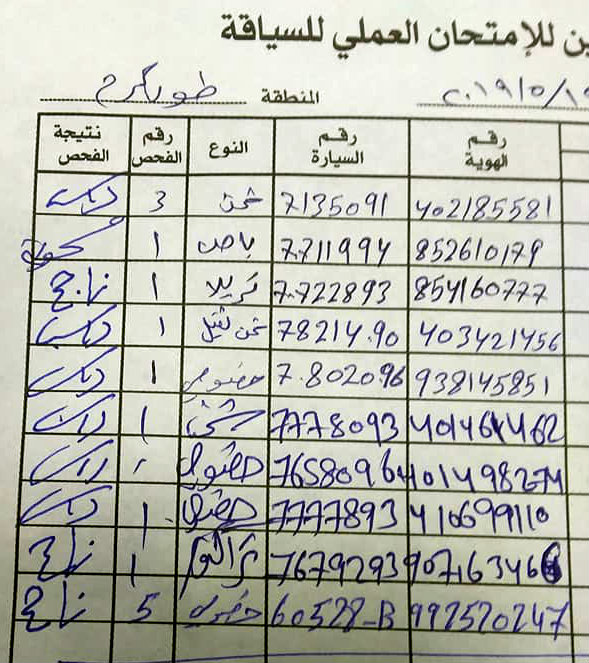 ين للإمتحان العملي للسياقة
٢٠١٩/٥/١٩ المنطقة طولكرم
رقم الهوية رقم السيارة النوع رقم الفحص نتيجة الفحص
402185581 7135091 شحن 3
852610179 7711994 باص 1
854160777 7.722893 تريلا 1 ناجح
403421456 78214.90 شحن ثقيل 1
938145851 7.802096 خصوصي 1
401464462 7778093 شحن 1
401498274 7658096 خصوصي
410699110 7777893 خصوصي 1
907163466 7679293 1 ناجح
992520247 60528-B خصوصي 5 ناجح